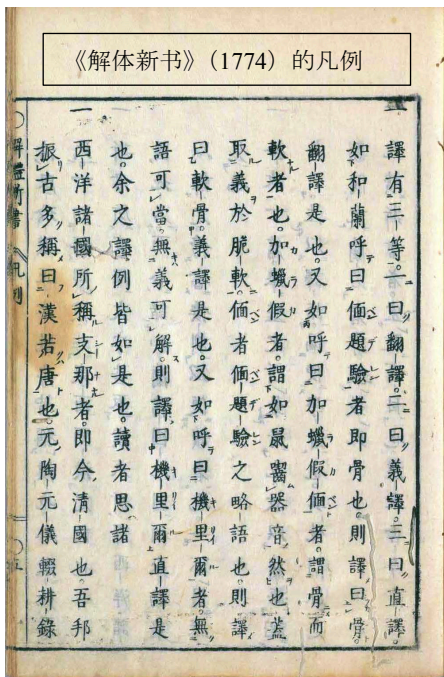 《解体新书》（1774）的凡例
一譯有三等。一曰翻譯。二曰義譯。三曰直譯。
如和蘭呼曰偭題驗者即骨也。則譯曰骨。
翻譯是也。又如呼曰加蠟假偭者。謂骨而
軟者也。加蠟假者。謂如鼠囓器音然也。蓋
取義於脆軟。偭者偭題驗之略語也。則譯
曰軟骨。義譯是也。又如呼曰機里爾者。無
語可當。無義可解。則譯曰機里爾。直譯是
也。余之譯例皆如是也。讀者思諸
一西洋諸國所稱支那者。即今清國也。吾邦
振古多稱曰漢若唐也。元陶元儀輟耕錄
解體新書 凡例